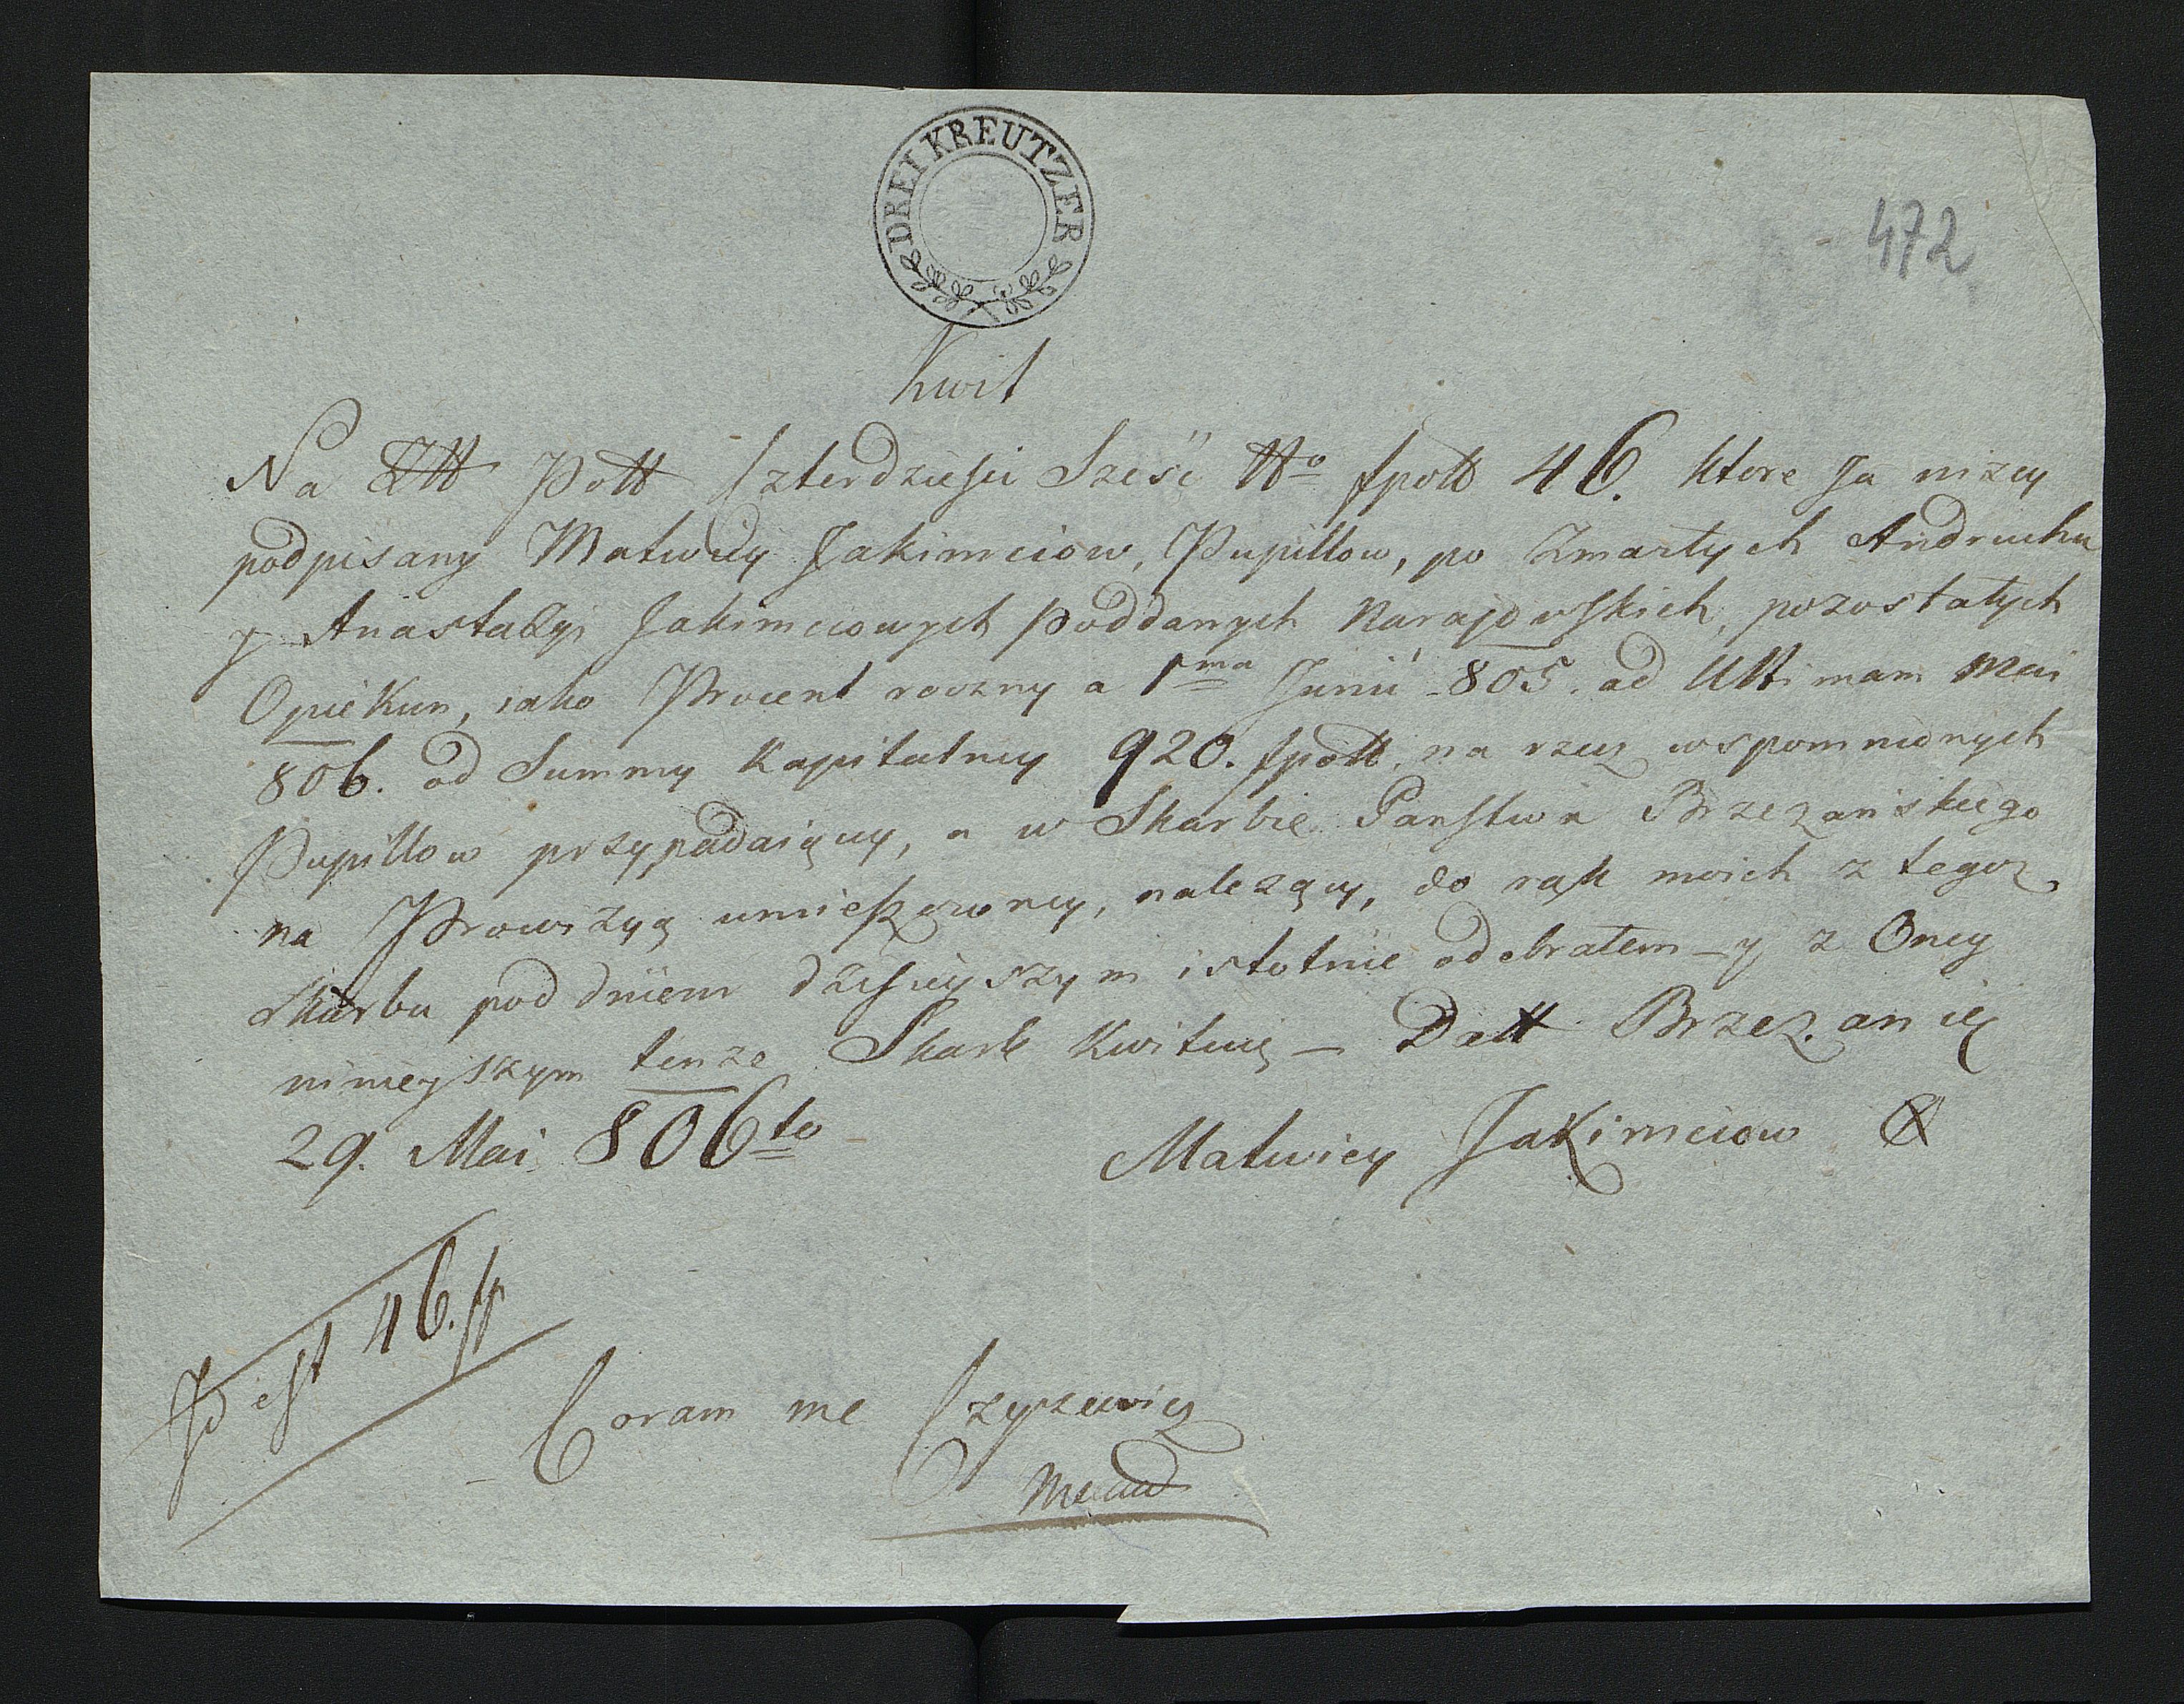 DREI KREUTZER
472
Kwit
Na Złł Poll Czterdziesci Szesć No fpoll 46. ktore Ja nizey
podpisany Matwiey Jakimciow, Pupillow, po Zmarłych Andruchu
y Anastazyi Jakimciowych Poddanych Narajowskich, pozostałych
Opiekun, iako Procent roczny a 1ma Junii 805. ad Ultimam Mai
806. od Summy Kapitalney 920. fpoll, na rzecz wspomnionych
Pupillow przypadaiący, a w Skarbie Panstwa Brzezańskiego
na Prowizyą umieszczoney, należący, do rąk moich z tegoz
Skarbu pod dniem dzisieyszym istotnie odebrałem – y z Oney
ninieyszym tenze Skarb Kwituię – Datt Brzezanie
29. Mai 806to
Matwiey Jakimciow X
Id est 46. fp
Coram me Czyzewicz